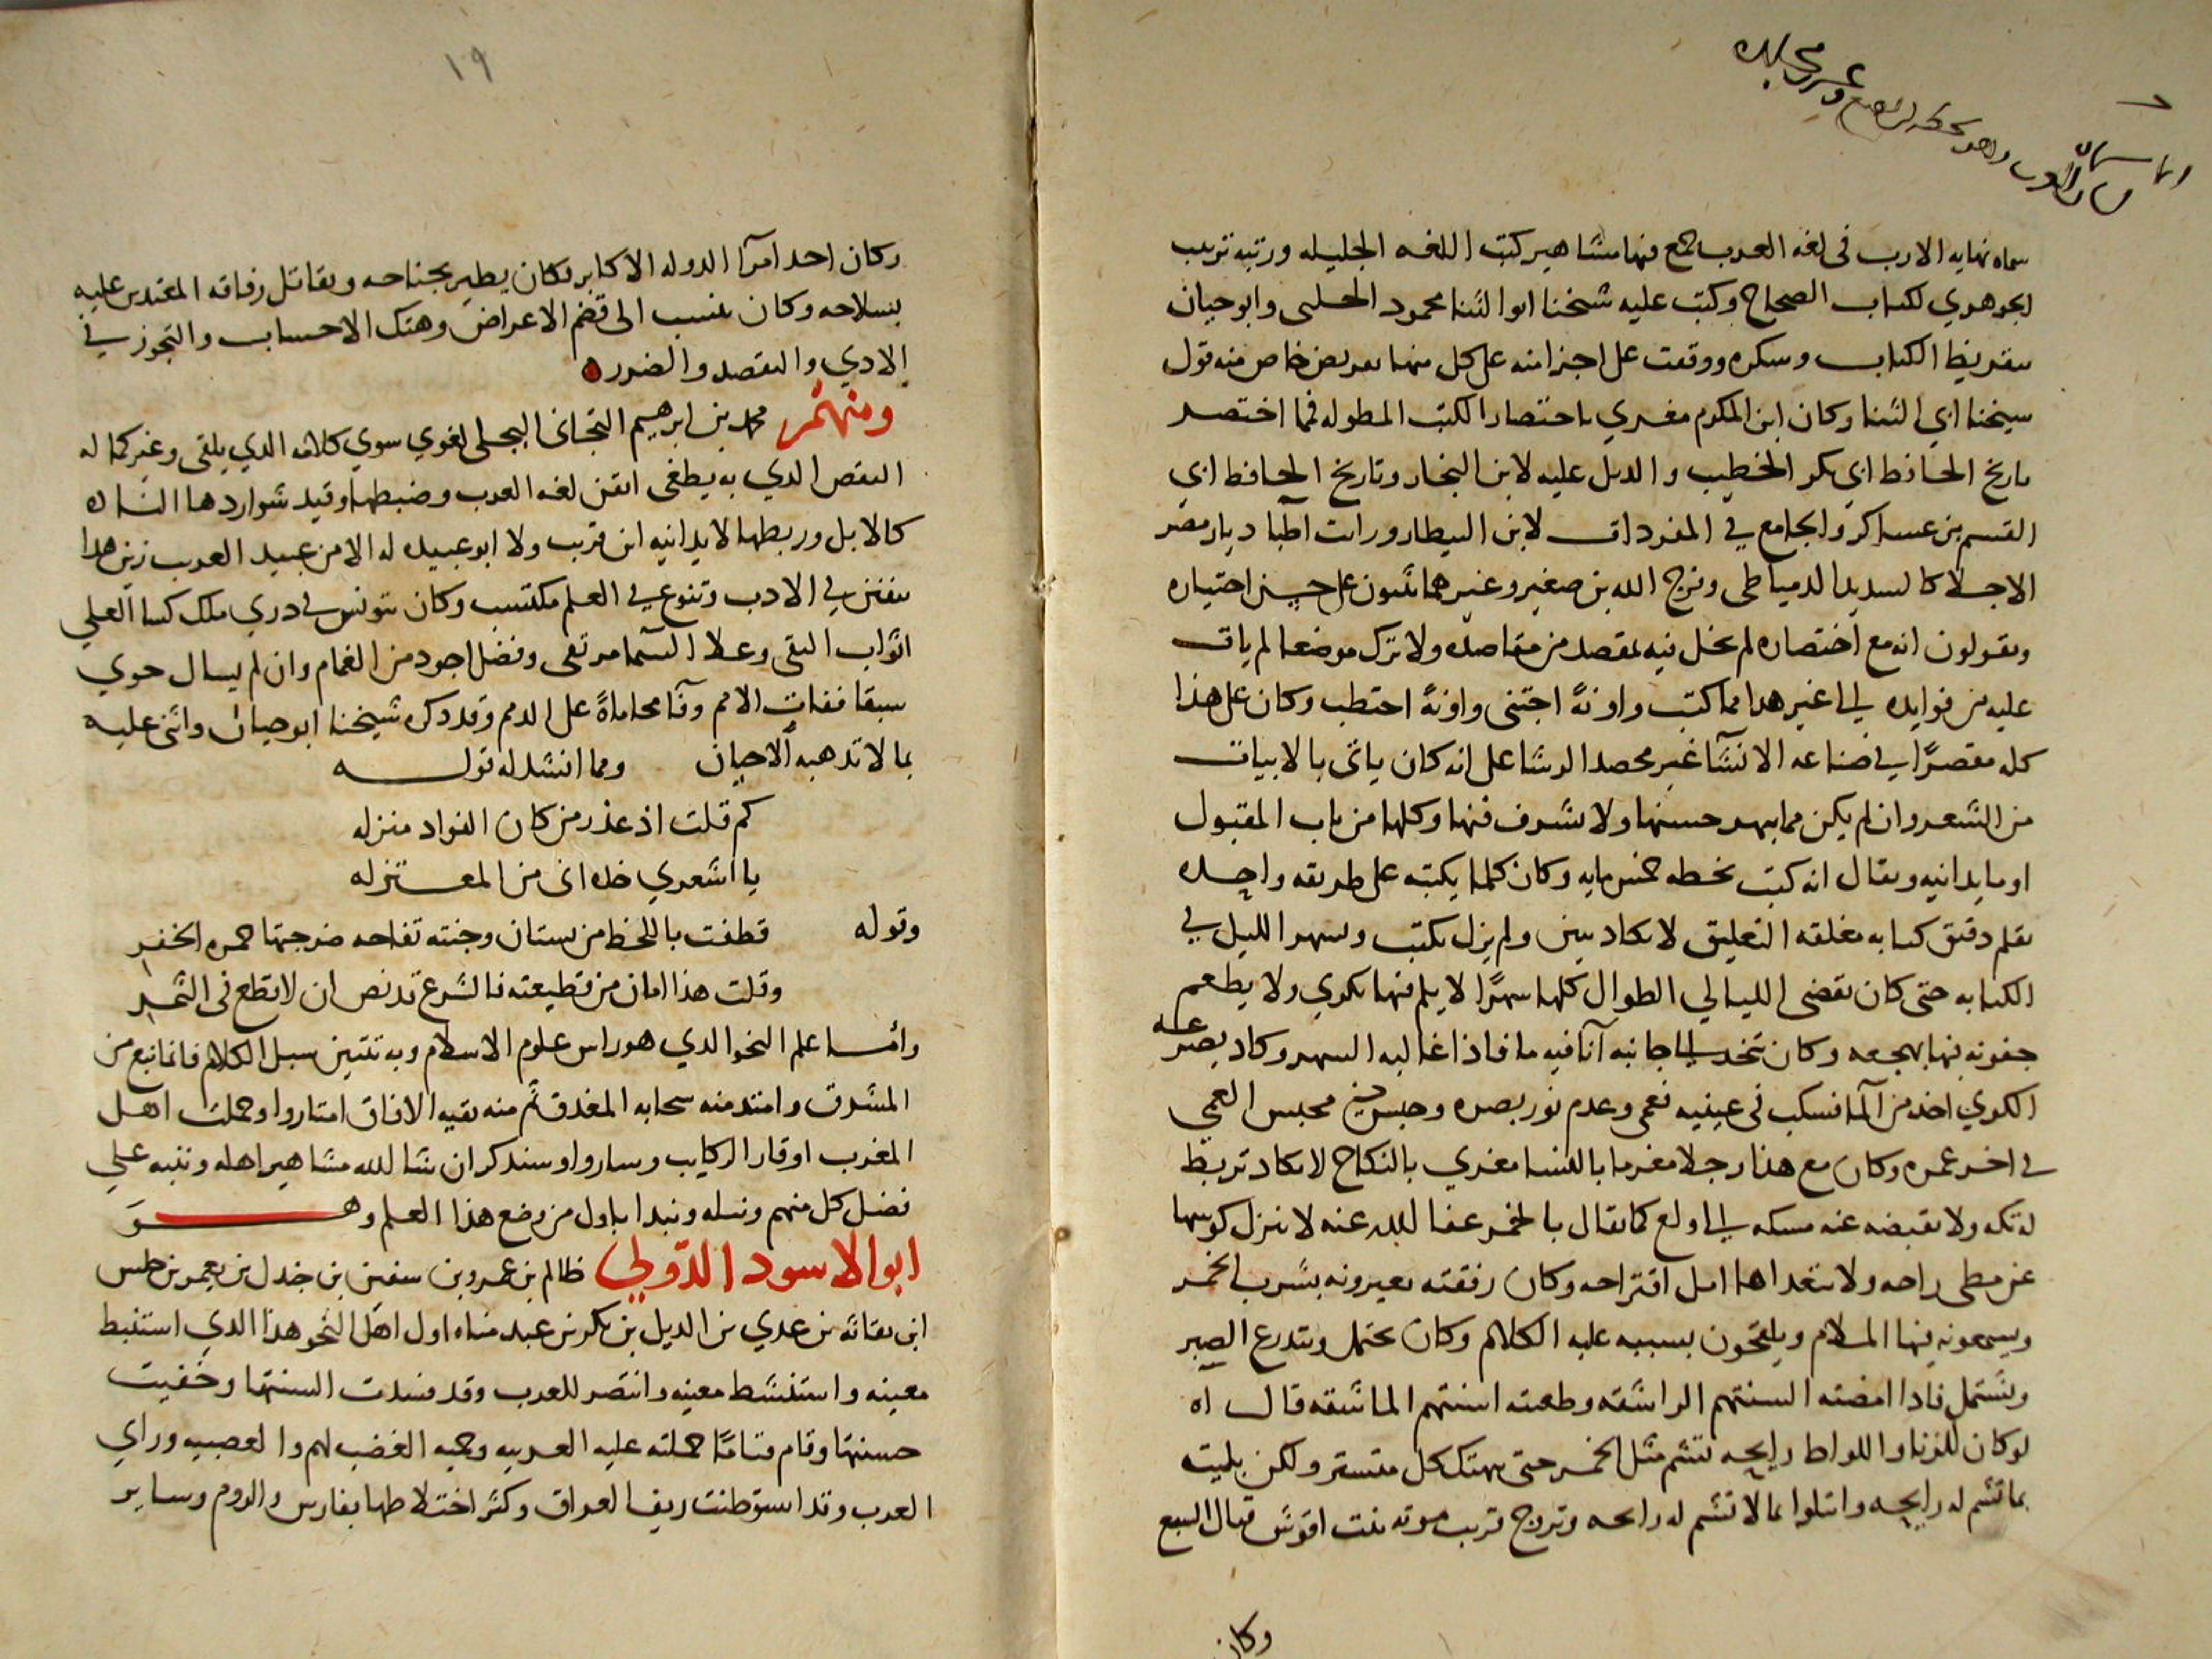 انما سماه
لسان العرب وهو بخطه
سماه نهايه الارب فى لغه العرب جمع فيها مشاهير كتب اللغه الجليله ورتبه ترتيب
الجوهري لكتاب الصحاح وكتب عليه شيخنا ابو الثنا محمود الحلبى وابو حيان
بتقريظ الكتاب وشكره ووقفت على اجزا منه على كل منها تعريض خاص منه قول
شيخنا ابي الثنا وكان ابن المكرم مغري باختصار الكتب المطوله فمما اختصر
تاريخ الحافظ ابي بكر الخطيب والديل عليه لابن النجار وتاريخ الحافظ ابي
القسم بن عساكر والجامع في المفردات لابن البيطار ورات اطبا ديار مصر
الاجلا كالسديد الدمياطى وفرج الله بن صغير وغيرهما يثنون على حسن اختياره
ويقولون انه مع اختصاره لم يخل فيه بمقصد من مقاصده ولا ترك موضعا لم يات
عليه من فوايده الى غير هدا مما كتب واونةً اجتنى واونةً احتطب وكان على هذا
كله مقصرًا في صناعه الانشآ غير محصد الرشا على انه كان ياتى بالابيات
من الشعر وان لم يكن مما يبهر حسنها ولا يشرف فنها وكلها من باب المقبول
او ما يدانيه ويقال انه كتب بخطه خمس مايه وكان كلما يكتبه على طريقه واحده
بقلم دقيق كتابه مغلقه التعليق لا يكاد يبين ولم يزل يكتب ويسهر الليل في
الكتابه حتى كان يقضى الليالي الطوال كلها سهرًا لا يلم فيها بكري ولا يطعم
جفونه فيها بهجعه وكان يتخد الى جانبه آنا فيه ما فاذا غالبه السهر وكاد يصرعه
الكري اخد من المآ فسكب فى عينيه فعمى وعدم نور بصره وحبس في محبس العمي
في اخر عمره وكان مع هذا رجلا مغرما بالنسا مغري بالنكاح لا يكاد تربط
له تكه ولا يقبضه عنه مسكه الى اولع كما يقال بالخمر عفا الله عنه لا ينزل كوسها
عن مطى راحه ولا يتعداها امل اقتراحه وكان رفقته يعيرونه بشرب الخمر
ويسمعونه فيها الملام ويلحون بسببه عليه الكلام وكان يحتمل ويتدرع الصبر
ويشتمل فادا امضته السنتهم الراشقه وطعنته اسنتهم الماشقه قال اه
لو كان للزنا واللواط رايحه تشم مثل الخمر حتى يهتك كل متستر ولكن بليت
بما تشم له رايحه وابتلوا بما لا تشم له رايحه وتزوج قريب موته بنت اقوش قتال السبع
وكان
١٩
وكان احد امرآ الدوله الاكابر فكان يطير بجناحه ويقاتل رفاقه المعتدين عليه
بسلاحه وكان ينسب الى قضم الاعراض وهتك الاحساب والتجوز في
الادي والقصد والضرر
ومنهم محمد بن ابرهيم التجانى البجلى لغوي سوي كلامه الدي يلقى وغير كماله
النقص الدي به يطغى اتقن لغه العرب وضبطها وقيد شواردها الناده
كالابل وربطها لا يدانيه ابن قريب ولا ابو عبيد له الا من عبيد العرب زين هدا
بتفنن في الادب وتنوع في العلم مكتسب وكان بتونس في دري ملك كسا العلى
اثواب التقى وعلا السما مرتقى وفضل اجود من الغمام وان لم يسال حوي
سبقا ففات الامم وفآ محاماةً على الدمم وقد دكره شيخنا ابو حيان واثنى عليه
بما لا تدهبه الاحيان ومما انشد له قوله
كم قلت اذ عذر من كان الفواد منزله
يا اشعري خده انى من المعتزله
وقوله قطفت باللحظ من بستان وجنته تفاحه ضرجتها حمره الخفر
وقلت هذا امان من قطيعته فالشرع قد نص ان لا قطع فى الثمر
وأما علم النحو الدي هو راس علوم الاسلام وبه تتبين سبل الكلام فانما نبع من
المشرق وامتد منه سحابه المغدق ثم منه بقيه الافاق امتاروا وحملت اهل
المغرب اوقار الركايب وساروا وسندكر ان شا الله مشاهير اهله وننبه على
فضل كل منهم ونبله ونبدا باول من وضع هذا العلم وهو
ابو الاسود الدؤلي ظالم بن عمرو بن سفين بن جندل بن يعمر بن حلس
ابن نفاثه بن عدي بن الديل بن بكر بن عبد مناه اول اهل النحو هذا الدي استنبط
معينه واستنشط معينه وانتصر للعرب وقد فسدت السنتها وخفيت
حسنتها وقام قيامًا حملته عليه العربيه وحميه الغضب لهم والعصبيه وراي
العرب وقد استوطنت ريف العراق وكثر اختلاطها بفارس والروم وساير